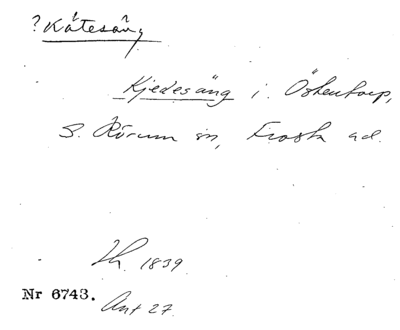 ? Kätesäng
Kjedesäng i Öskentorp,
S. Rörum sn, Frosta hd.
Lh. 1839
Nr 6743. Ant 27.